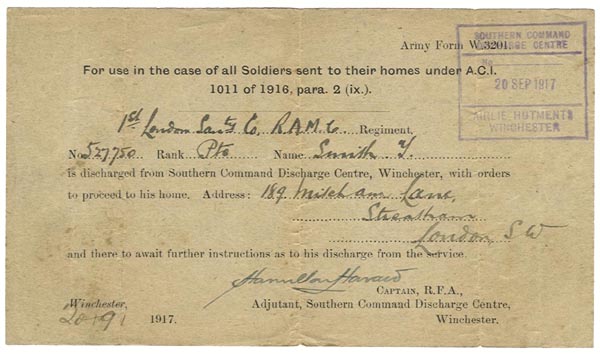 Army Form W.3201.
SOUTHERN COMMAND
DISCHARGE CENTRE
No
20 SEP 1917
AIRLIE HUTMENTS
WINCHESTER
For use in the case of all Soldiers sent to their homes under A.C.I.
1011 of 1916, para. 2 (ix.).
1st London Santy Co, R.A.M.C. Regiment,
No. 527750 Rank Pte Name Smith
is discharged from Southern Command Discharge Centre, Winchester, with orders
to proceed to his home. Address: 189 Mitcham Lane,
Streatham
London, S W
and there to await further instructions as to his discharge from the service.
CAPTAIN, R.F.A.,
Adjutant, Southern Command Discharge Centre,
Winchester,
20 9 1917.
Winchester.